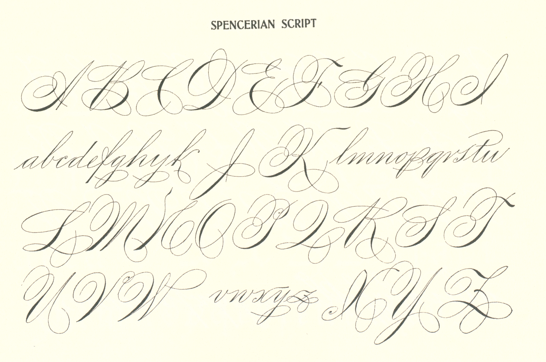 SPENCERIAN SCRIPT
A B C D E F G H I
abcdefghijk J K lmnopqrstu
L M N O P Q R S T
U V W vwxyz X Y Z